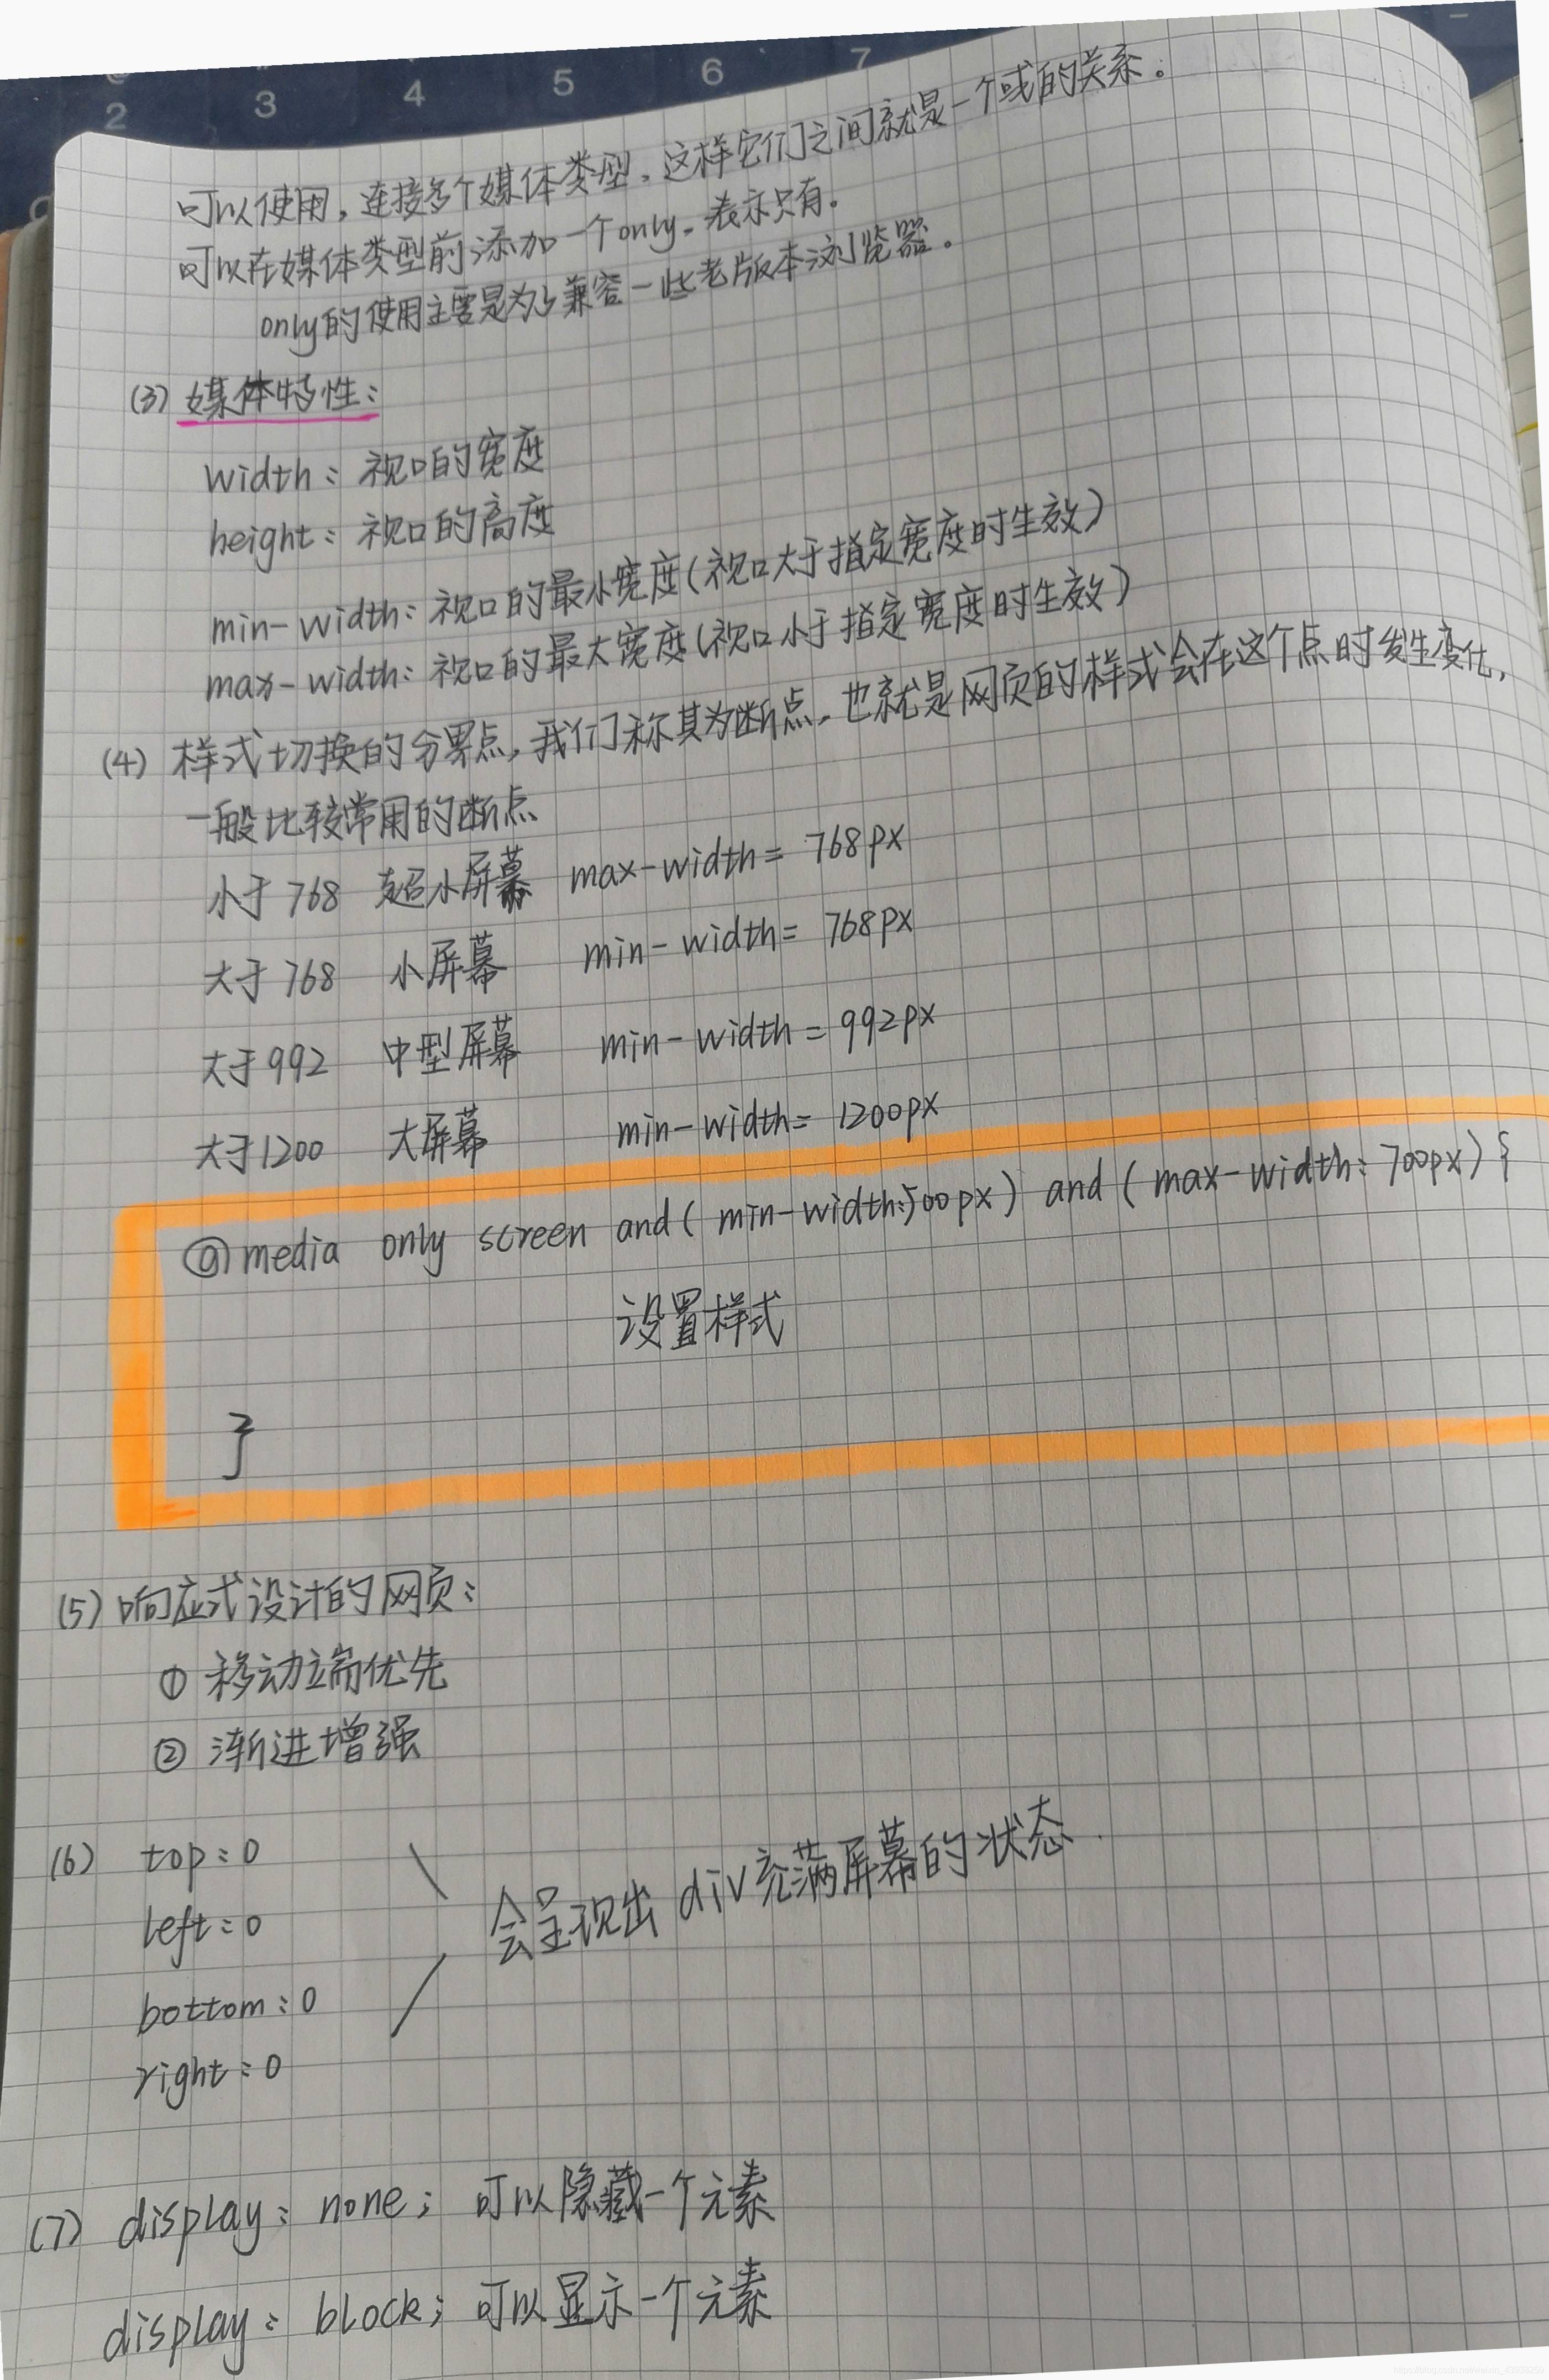 2 3 4 5 6 7
可以使用，连接多个媒体类型，这样它们之间就是一个或的关系。
可以在媒体类型前添加一个only，表示只有。
only的使用主要是为了兼容一些老版本浏览器。
(3) 媒体特性：
width：视口的宽度
height：视口的高度
min-width：视口的最小宽度(视口大于指定宽度时生效)
max-width：视口的最大宽度(视口小于指定宽度时生效)
(4) 样式切换的分界点，我们称其为断点，也就是网页的样式会在这个点时发生变化，
一般比较常用的断点
小于768 超小屏幕 max-width= 768px
大于768 小屏幕 min-width= 768px
大于992 中型屏幕 min-width=992px
大于1200 大屏幕 min-width= 1200px
@media only screen and( min-width:500px) and ( max-width: 700px) {
设置样式
}
(5) 响应式设计的网页：
① 移动端优先
② 渐进增强
(6) top：0
left：0
会呈现出div充满屏幕的状态.
bottom：0
right：0
(7) display：none；可以隐藏一个元素
display：block；可以显示一个元素